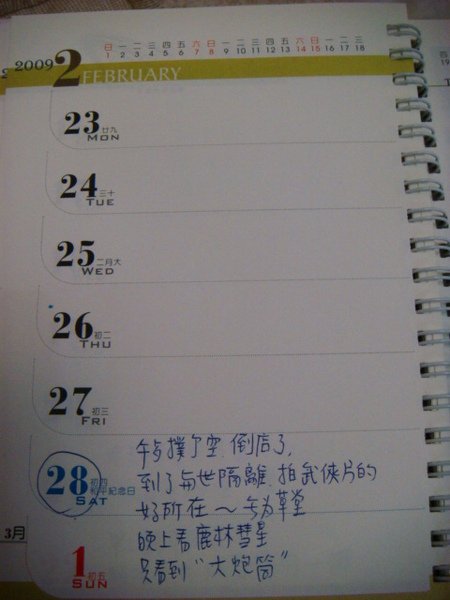 2009 2 FEBRUARY
日 一 二 三 四 五 六 日 一 二 三 四 五 六 日 一 二 三
1 2 3 4 5 6 7 8 9 10 11 12 13 14 15 16 17 18
23 廿九
MON
24 三十
TUE
25 二月大
WED
26 初二
THU
27 初三
FRI
28 初四
和平紀念日
SAT
撲了空 倒店了,
到了与世隔離 拍武俠片的
好所在～ 草堂
晚上看鹿林彗星
只看到“大炮筒”
3月
1 初五
SUN